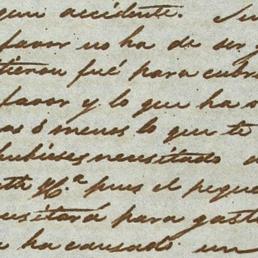 gun accidente. Su
favor no ha de ser y
tieron fué para cubr
favor y lo que ha s
as ó menos lo que te
hubieses necesitado
pues el peque
cesitará para gast
ha causado un